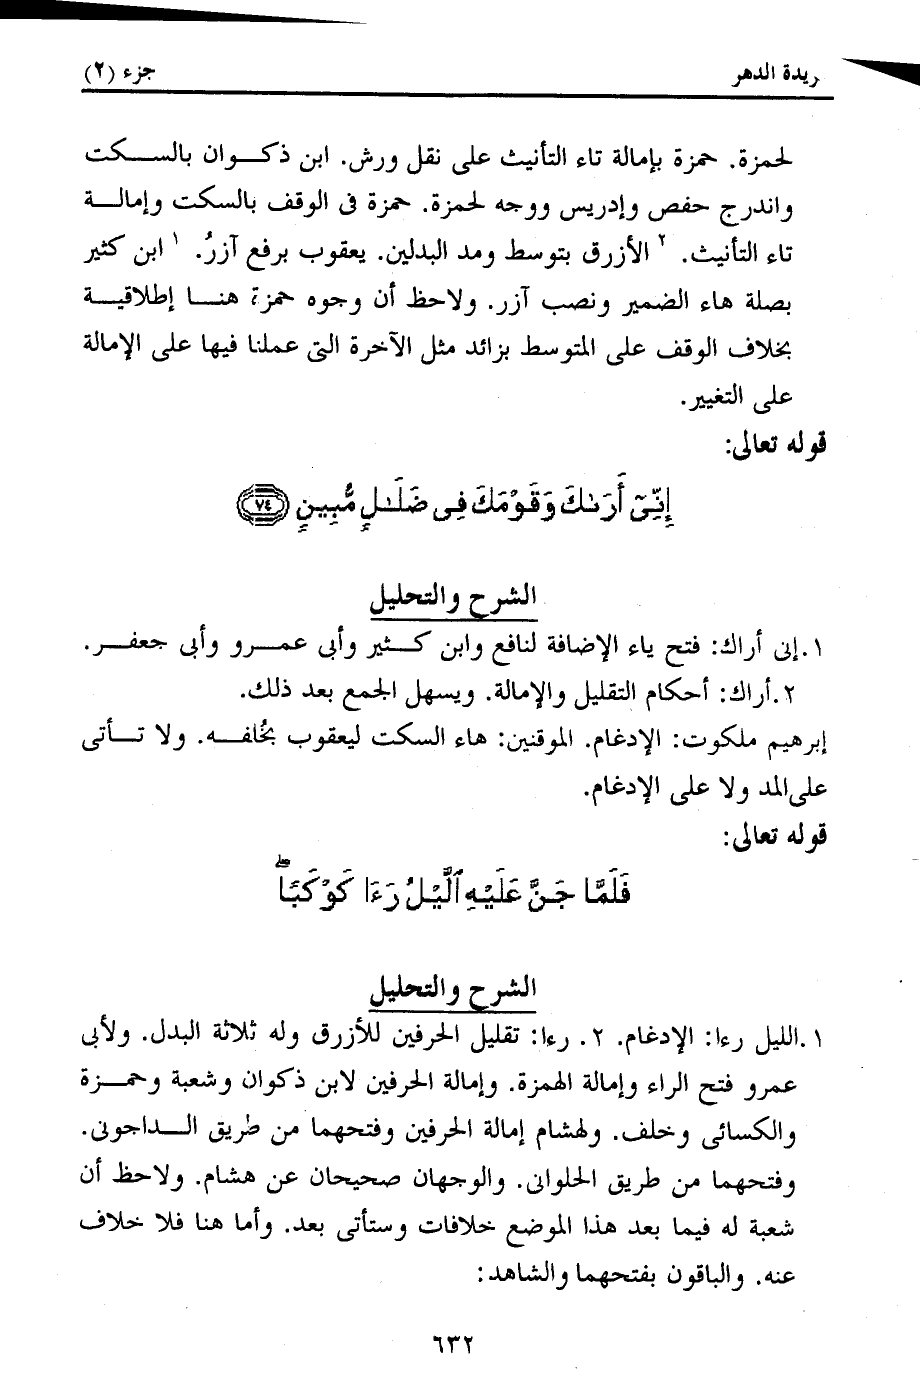 ريدة الدهر
جزء (٢)
لحمزة. حمزة بإمالة تاء التأنيث على نقل ورش. ابن ذكوان بالسكت
واندرج حفص وإدريس ووجه لحمزة. حمزة فى الوقف بالسكت وإمالة
تاء التأنيث. ٢ الأزرق بتوسط ومد البدلين. يعقوب برفع آزرُ. ١ ابن كثير
بصلة هاء الضمير ونصب آزر. ولاحظ أن وجوه حمزة هنا إطلاقية
بخلاف الوقف على المتوسط بزائد مثل الآخرة التى عملنا فيها على الإمالة
على التغيير.
قوله تعالى:
إِنِّىٓ أَرَىٰكَ وَقَوْمَكَ فِى ضَلَـٰلٍ مُّبِينٍ ٧٤
الشرح والتحليل
١.إنى أراك: فتح ياء الإضافة لنافع وابن كثير وأبى عمرو وأبى جعفر.
٢.أراك: أحكام التقليل والإمالة. ويسهل الجمع بعد ذلك.
إبرهيم ملكوت: الإدغام. الموقنين: هاء السكت ليعقوب بخُلفه. ولا تأتى
على المد ولا على الإدغام.
قوله تعالى:
فَلَمَّا جَنَّ عَلَيْهِ ٱلَّيْلُ رَءَا كَوْكَبًاۖ
الشرح والتحليل
١.الليل رءا: الإدغام. ٢. رءا: تقليل الحرفين للأزرق وله ثلاثة البدل. ولأبى
عمرو فتح الراء وإمالة الهمزة. وإمالة الحرفين لابن ذكوان وشعبة وحمزة
والكسائى وخلف. ولهشام إمالة الحرفين وفتحهما من طريق الداجونى.
وفتحهما من طريق الحلوانى. والوجهان صحيحان عن هشام. ولاحظ أن
شعبة له فيما بعد هذا الموضع خلافات وستأتى بعد. وأما هنا فلا خلاف
عنه. والباقون بفتحهما والشاهد:
٦٣٢